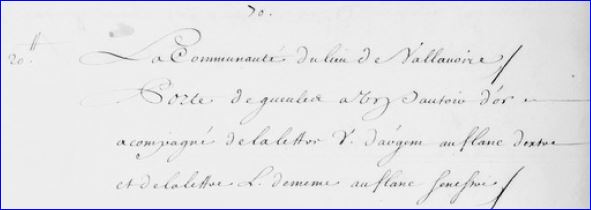 70.
20.tt La Communauté du lieu de Vallavoire /
Porte de gueules a un sautoir d'or
acompagné de la lettre V. d'argent au flanc dextre
et de la lettre L. de meme au flanc senestre /